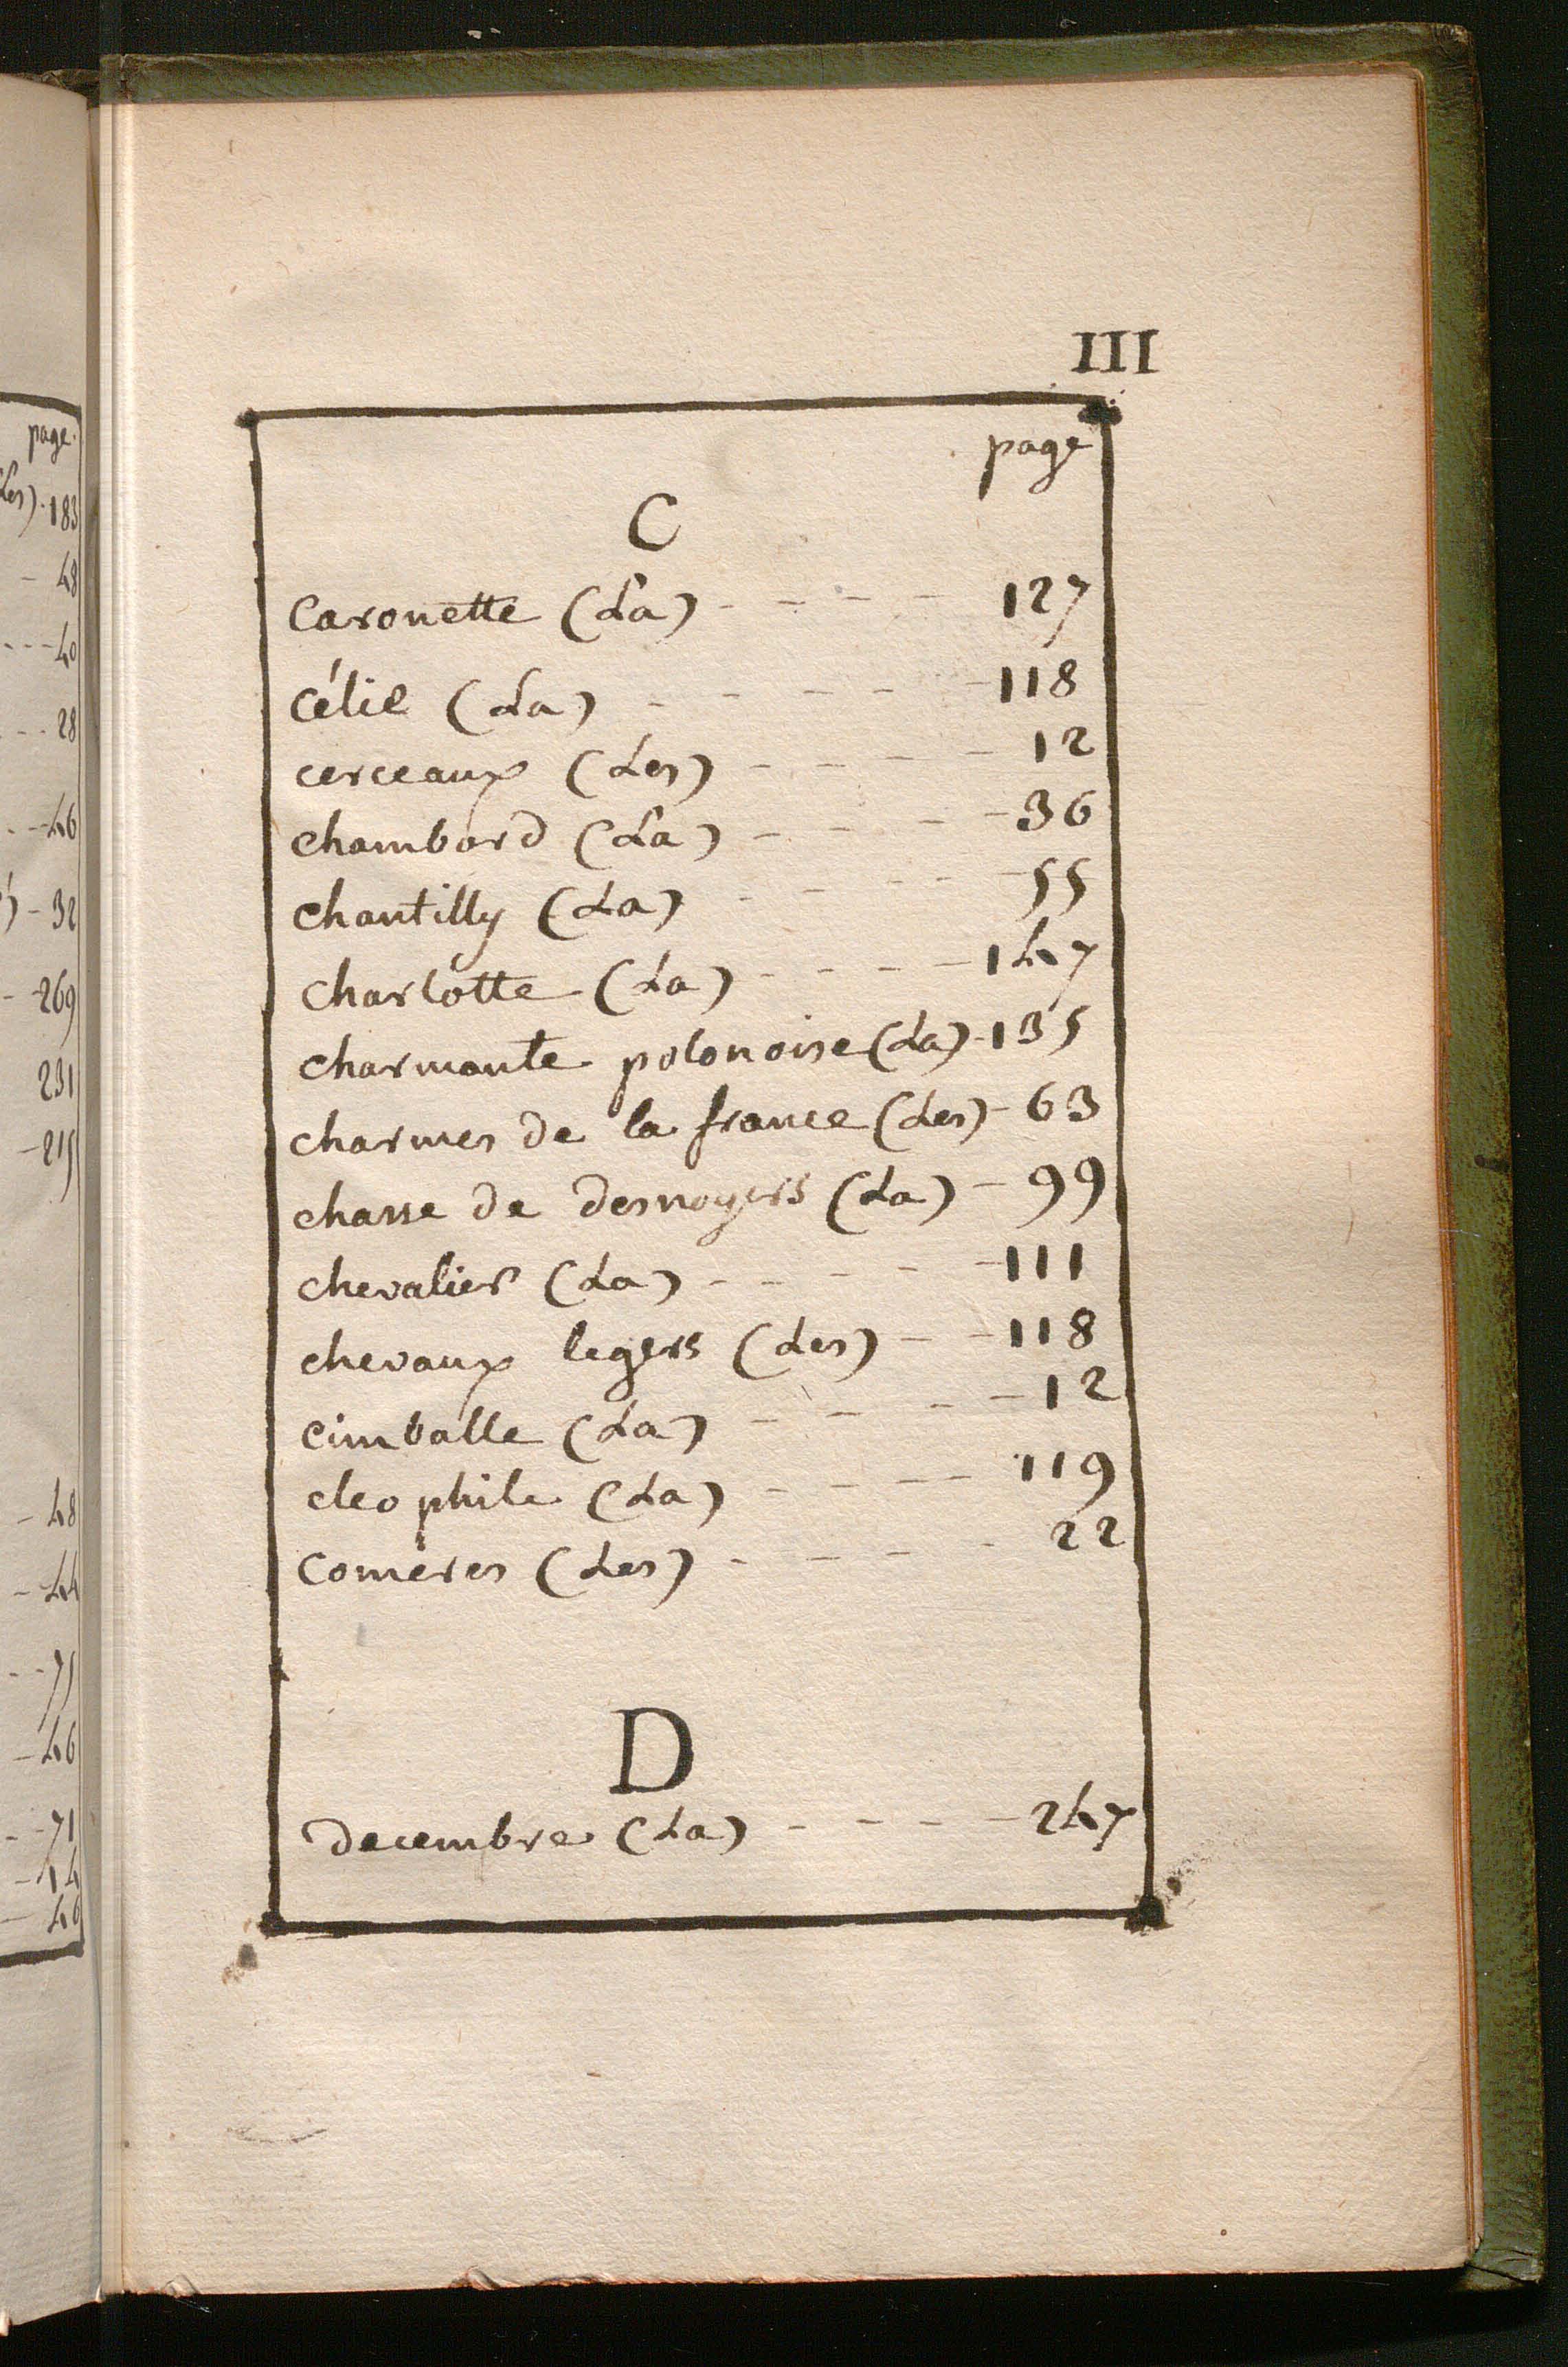 page.
Les). 183
- 48
---40
--- 28
---46
) - 32
--269
231
-215
- 48
-44
--75
-46
--71
-14
-46
III
page
C
Caronette (La) - - - - 127
Célie (La) - - - - - 118
cerceaux (Les) - - - - 12
chambord (La) - - - - 36
chantilly (La) - - - - - 55
charlotte (La) - - - - 147
charmante polonoise (La) - 135
charmes de la france (Les) - 63
chasse de desnoyers (La) - 99
chevalier (La) - - - - - 111
chevaux legers (Les) - - 118
cimballe (La) - - - - 12
cleophile (La) - - - - 119
Comeres (Les) - - - - - 22
D
decembre (La) - - - - - 247